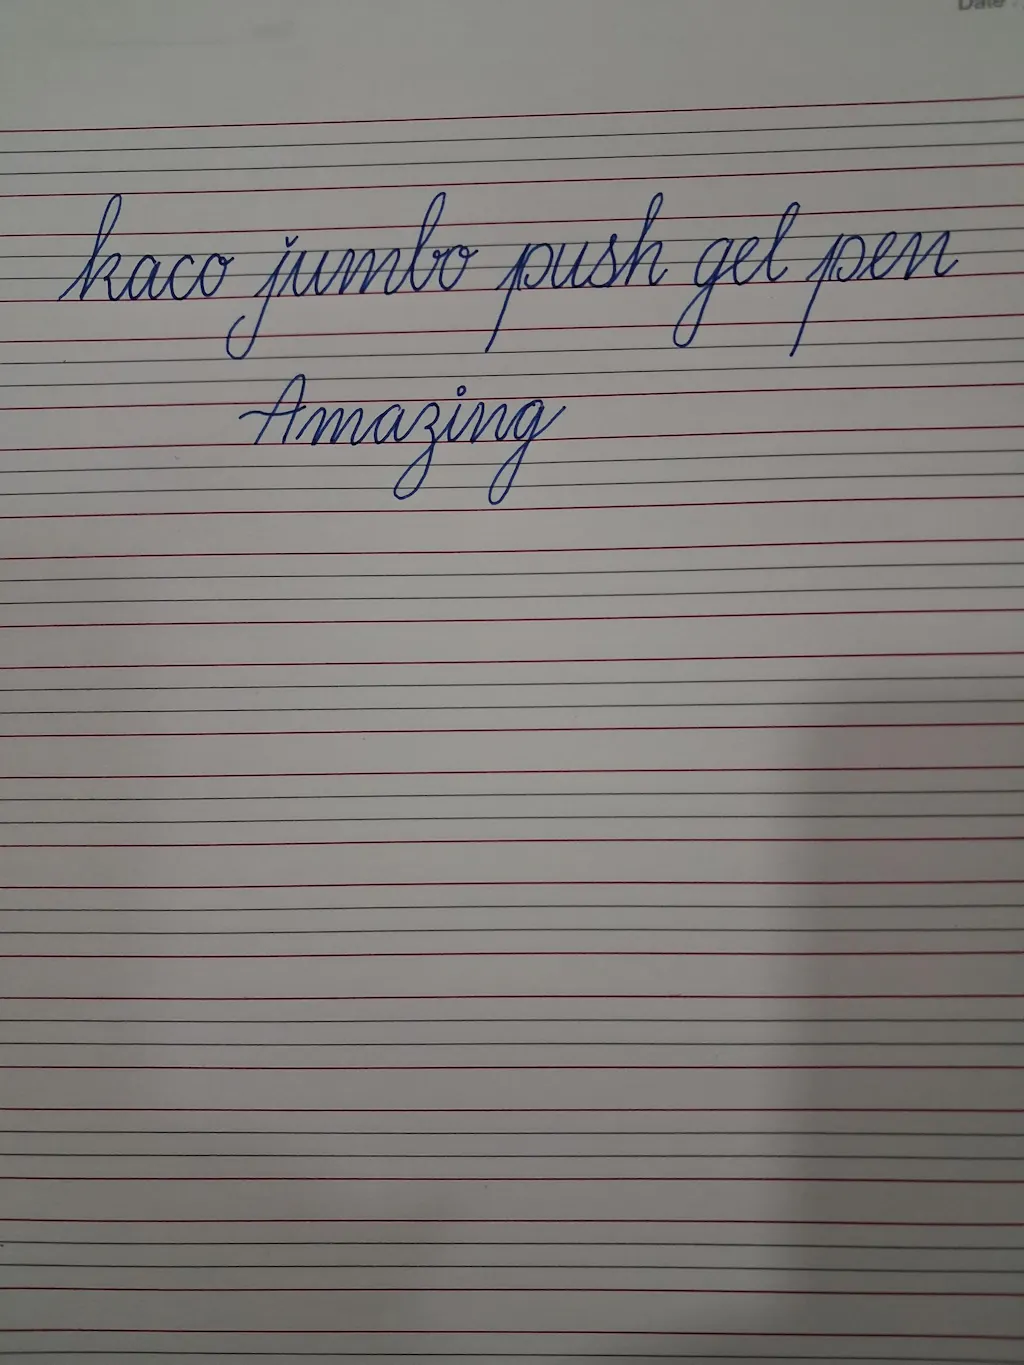 Date :
kaco jumbo push gel pen
Amazing